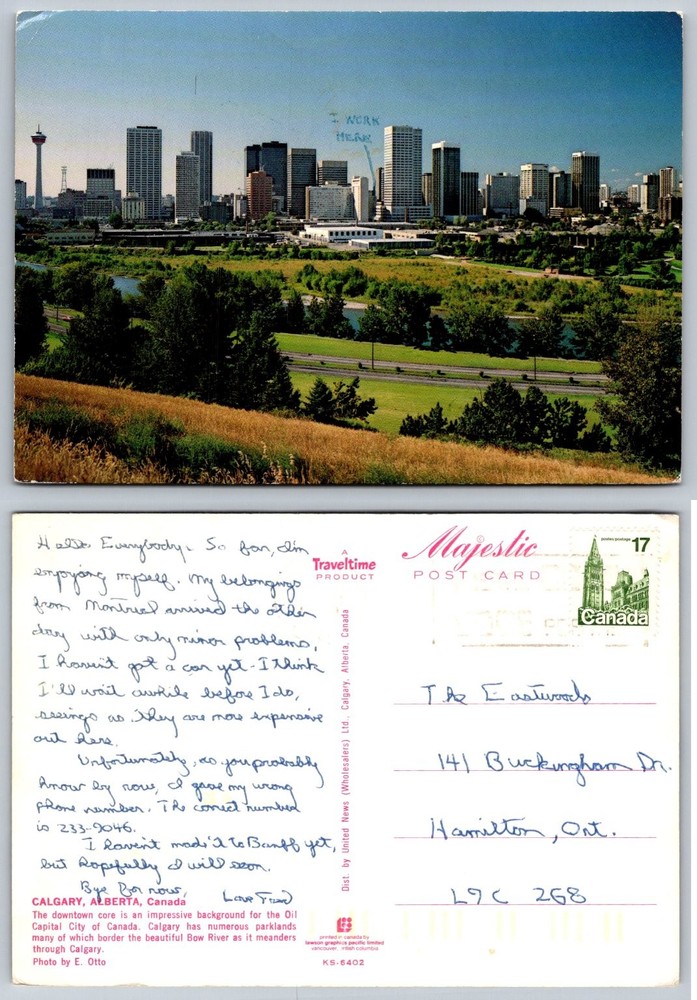 I WORK
HERE
Hello Everybody. So far, I'm
enjoying myself. My belongings
from Montreal arrived the other
day with only minor problems.
I haven't got a car yet - I think
I'll wait awhile before I do,
seeings as they are more expensive
out here.
Unfortunately, as you probably
know by now, I gave my wrong
phone number. The correct number
is 233-9046.
I haven't made it to Banff yet,
but hopefully I will soon.
Bye for now,
Love
CALGARY, ALBERTA, Canada
The downtown core is an impressive background for the Oil
Capital City of Canada. Calgary has numerous parklands
many of which border the beautiful Bow River as it meanders
through Calgary.
Photo by E. Otto
A
Traveltime
PRODUCT
Dist. by United News (Wholesalers) Ltd., Calgary, Alberta, Canada
printed in canada by
lawson graphics pacific limited
vancouver, british columbia
KS-6402
Majestic
POST CARD
postes/postage 17
Canada
The Eastwoods
141 Buckingham Dr.
Hamilton, Ont.
L9C 2G8